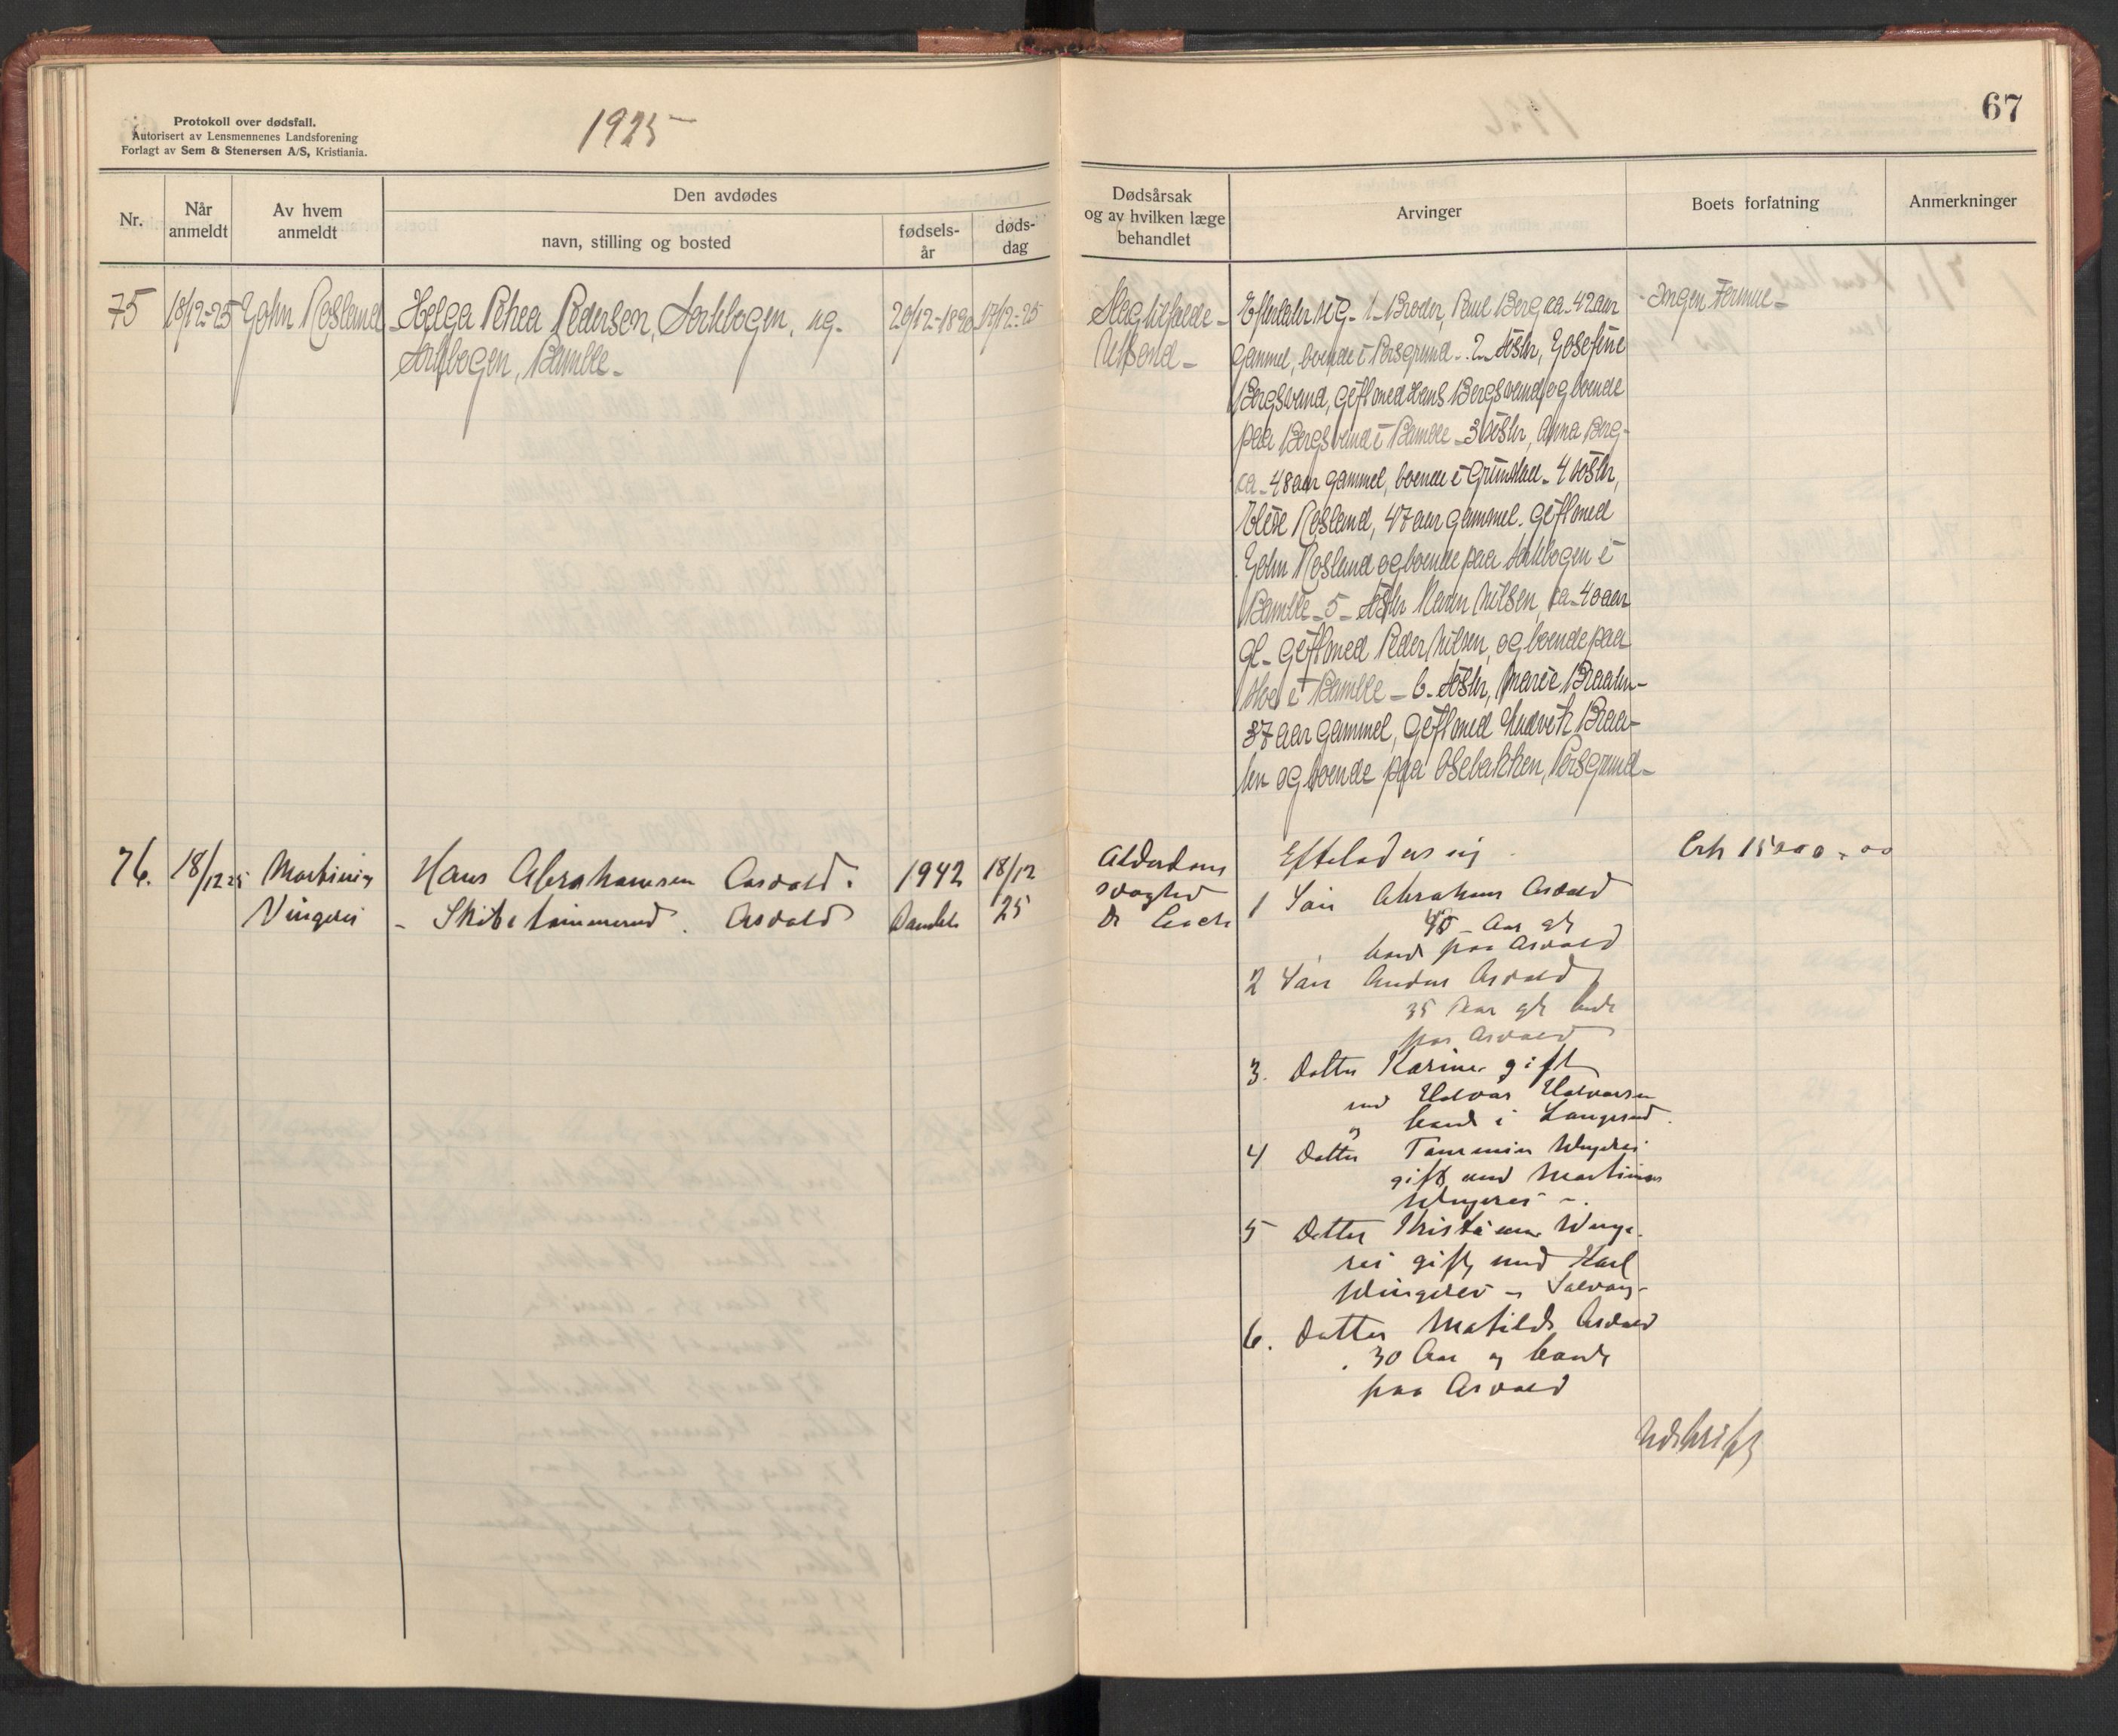 Protokoll over dødsfall.
Autorisert av Lensmennenes Landsforening
Forlagt av Sem & Stenersen A/S, Kristiania.
1925
67
Nr.
Når anmeldt
Av hvem anmeldt
Den avdødes
navn, stilling og bosted
fødsels-år
døds-dag
Dødsårsak og av hvilken læge behandlet
Arvinger
Boets forfatning
Anmerkninger
75 18/12-25 John Rosland Helga Pedersen, ug.
Bamble
20/12-1890 17/12-25
Slagtilfælde
Efterlater sig. 1 Broder, Paul Berg ca. 42 aar
gammel, boende i Porsgrund. 2 Søster, Josefine
Bergsvand, gift med Hans Bergsvand og boende
paa Bergsvand i Bamble 3 Søster, Anna Berg
ca. 48 aar gammel, boende i Grimstad. 4 Søster,
Rosland, 47 aar gammel. gift med
John Rosland og boende paa i
Bamble 5 Søster Maren Nilsen, ca. 40 aar
gl. gift med Peder Nilsen, og boende paa
i Bamble 6. Søster, Marie Braaten
37 aar gammel, gift med Ludvik Braa-
ten og boende paa Osebakken, Porsgrund
Ingen Formue
76. 18/12 25 Martinius
Vingerei
Hans Abrahamsen Asvald.
Skibstømmermand. Asvald
1942
Bamble
18/12
25
Alderdoms
svaghed
Dr
Efterlader sig
1 Søn Abraham Asvald
Aar gl
boende paa Asvald
2 Søn Anders Asvald
35 Aar gl boende
paa Asvald
3. Datter Karine gift
med Halvor Halvorsen
og boende i Langesund.
4 Datter
gift med Martinius
5 Datter
gift med Karl
6. Datter Matilde Asvald
30 Aar og boende
paa Asvald
15000,00
Udskrift